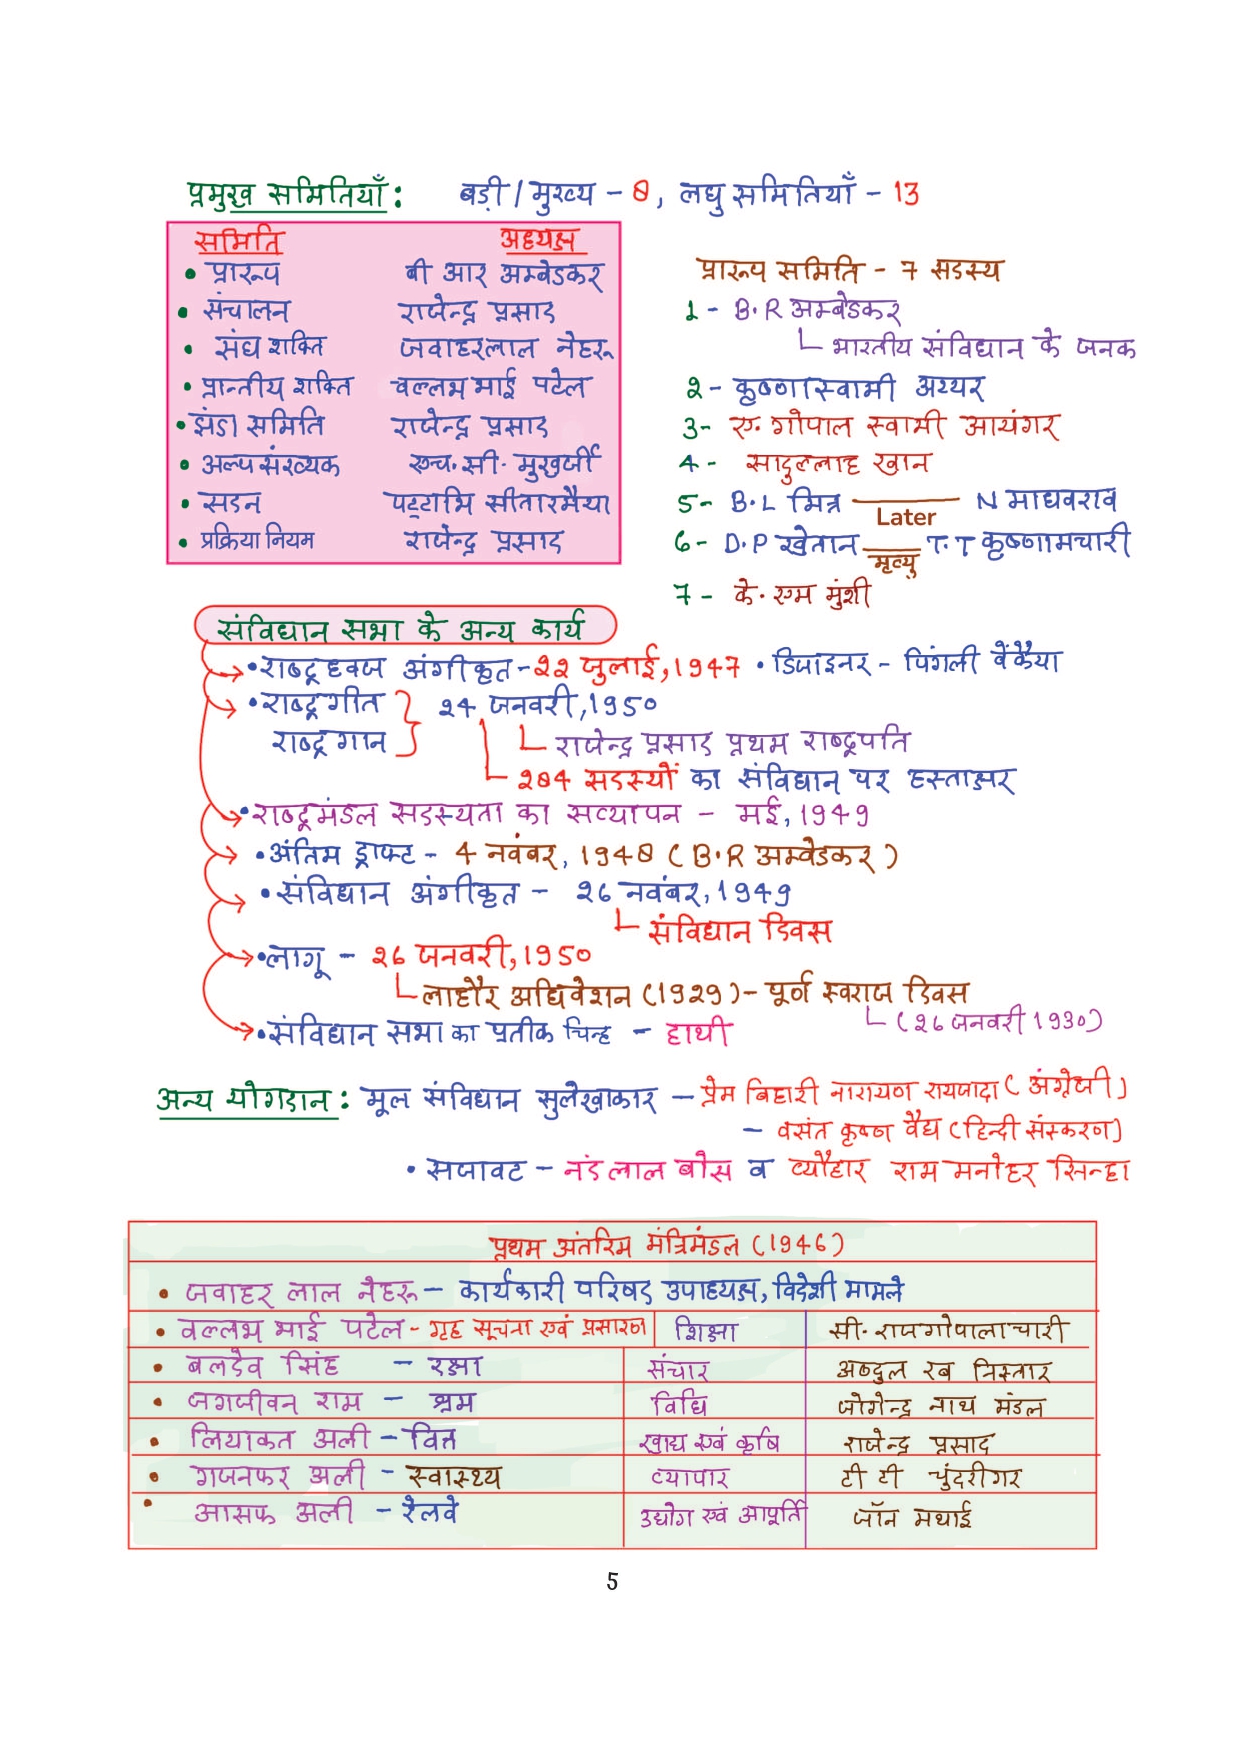 प्रमुख समितियाँ : बड़ी / मुख्य - 8, लघु समितियाँ - 13
समिति अध्यक्ष
• प्रारूप बी आर अम्बेडकर
• संचालन राजेन्द्र प्रसाद
• संघ शक्ति जवाहरलाल नेहरू
• प्रान्तीय शक्ति वल्लभ भाई पटेल
• झंडा समिति राजेन्द्र प्रसाद
• अल्पसंख्यक एच. सी. मुखर्जी
• सदन पट्टाभि सीतारमैया
• प्रक्रिया नियम राजेन्द्र प्रसाद
प्रारूप समिति - 7 सदस्य
1 - B.R अम्बेडकर
भारतीय संविधान के जनक
2 - कृष्णास्वामी अय्यर
3- ए. गोपाल स्वामी आयंगर
4 - सादुल्लाह खान
5- B.L मित्र Later N माधवराव
6 - D.P खेतान मृत्यु T.T कृष्णामचारी
7 - के. एम मुंशी
संविधान सभा के अन्य कार्य
• राष्ट्रध्वज अंगीकृत - 22 जुलाई, 1947 • डिजाइनर - पिंगली वेंकैया
• राष्ट्रगीत } 24 जनवरी, 1950
राष्ट्रगान
राजेन्द्र प्रसाद प्रथम राष्ट्रपति
284 सदस्यों का संविधान पर हस्ताक्षर
• राष्ट्रमंडल सदस्यता का सत्यापन - मई, 1949
• अंतिम ड्राफ्ट - 4 नवंबर, 1948 (B.R अम्बेडकर)
• संविधान अंगीकृत - 26 नवंबर, 1949
संविधान दिवस
• लागू - 26 जनवरी, 1950
लाहौर अधिवेशन (1929) - पूर्ण स्वराज दिवस
(26 जनवरी 1930)
• संविधान सभा का प्रतीक चिन्ह - हाथी
अन्य योगदान : मूल संविधान सुलेखाकार - प्रेम बिहारी नारायण रायजादा (अंग्रेजी)
- वसंत कृष्ण वैद्य (हिन्दी संस्करण)
• सजावट - नंदलाल बोस व व्यौहार राम मनोहर सिन्हा
प्रथम अंतरिम मंत्रिमंडल (1946)
• जवाहर लाल नेहरू - कार्यकारी परिषद उपाध्यक्ष, विदेशी मामले
• वल्लभ भाई पटेल - गृह सूचना एवं प्रसारण शिक्षा सी. राजगोपालाचारी
• बलदेव सिंह - रक्षा संचार अब्दुल रब निस्तार
• जगजीवन राम - श्रम विधि जोगेन्द्र नाथ मंडल
• लियाकत अली - वित्त खाद्य एवं कृषि राजेन्द्र प्रसाद
• गजनफर अली - स्वास्थ्य व्यापार टी टी चुंदरीगर
• आसफ अली - रेलवे उद्योग एवं आपूर्ति जॉन मथाई
5